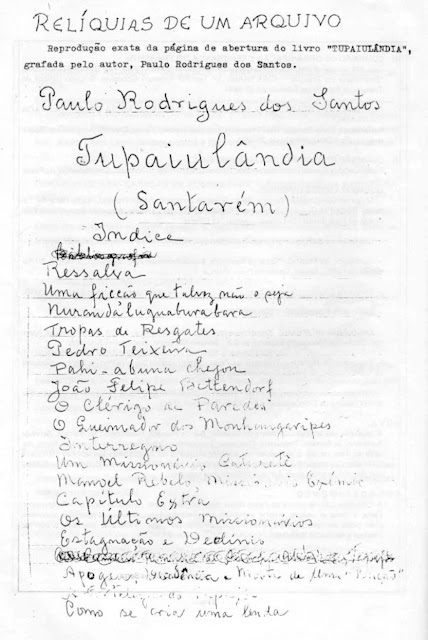 RELÍQUIAS DE UM ARQUIVO
Reprodução exata da página de abertura do livro "TUPAIULÂNDIA",
grafada pelo autor, Paulo Rodrigues dos Santos.
Paulo Rodrigues dos Santos
Tupaiulândia
(Santarém)
Indice
Ressalva
Uma ficção que talvez não o seja
Nurandaluguaburabara
Tropas de Resgates
Pedro Teixeira
Pahi-abuna chejou
João Felipe Bettendorf
O Clérigo de Paredes
O Queimador dos Monhangaripes
Interregno
Um Missionário Catueté
Manoel Rebelo, Missionário Exímio
Capítulo Extra
Os Últimos Missionários
Estagnação e Declínio
Apogeu, Decadência e Morte de Uma
Como se cria uma lenda